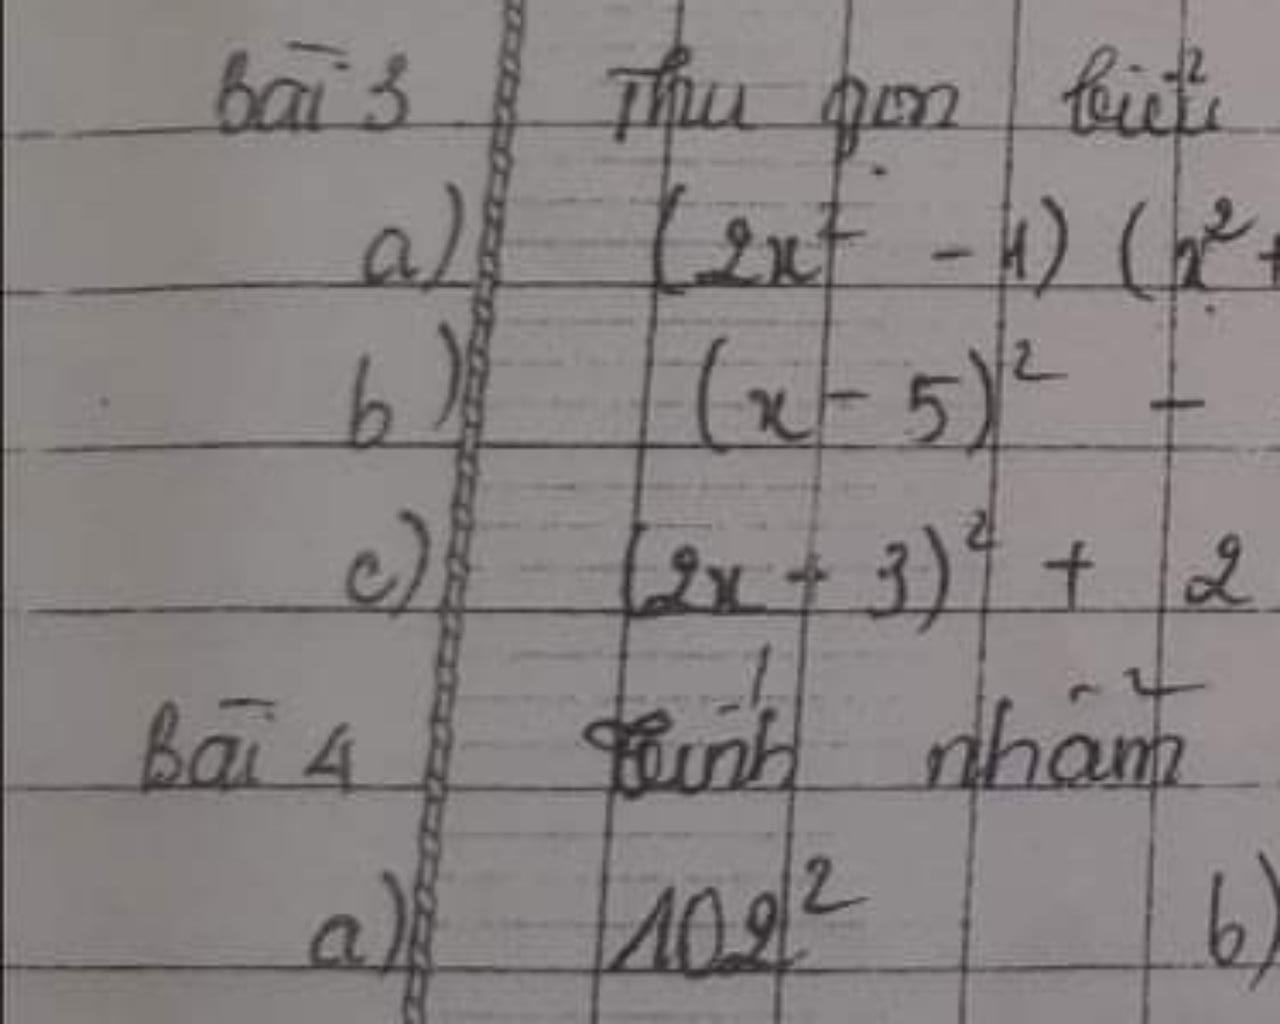 bài 3 Thu gọn biểu
a) (2x² - 1) (x² +
b) (x - 5)² -
c) (2x + 3)² + 2
Bài 4 Tính nhẩm
a) 102² b)